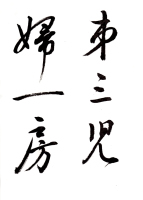 弗三児
婦一房